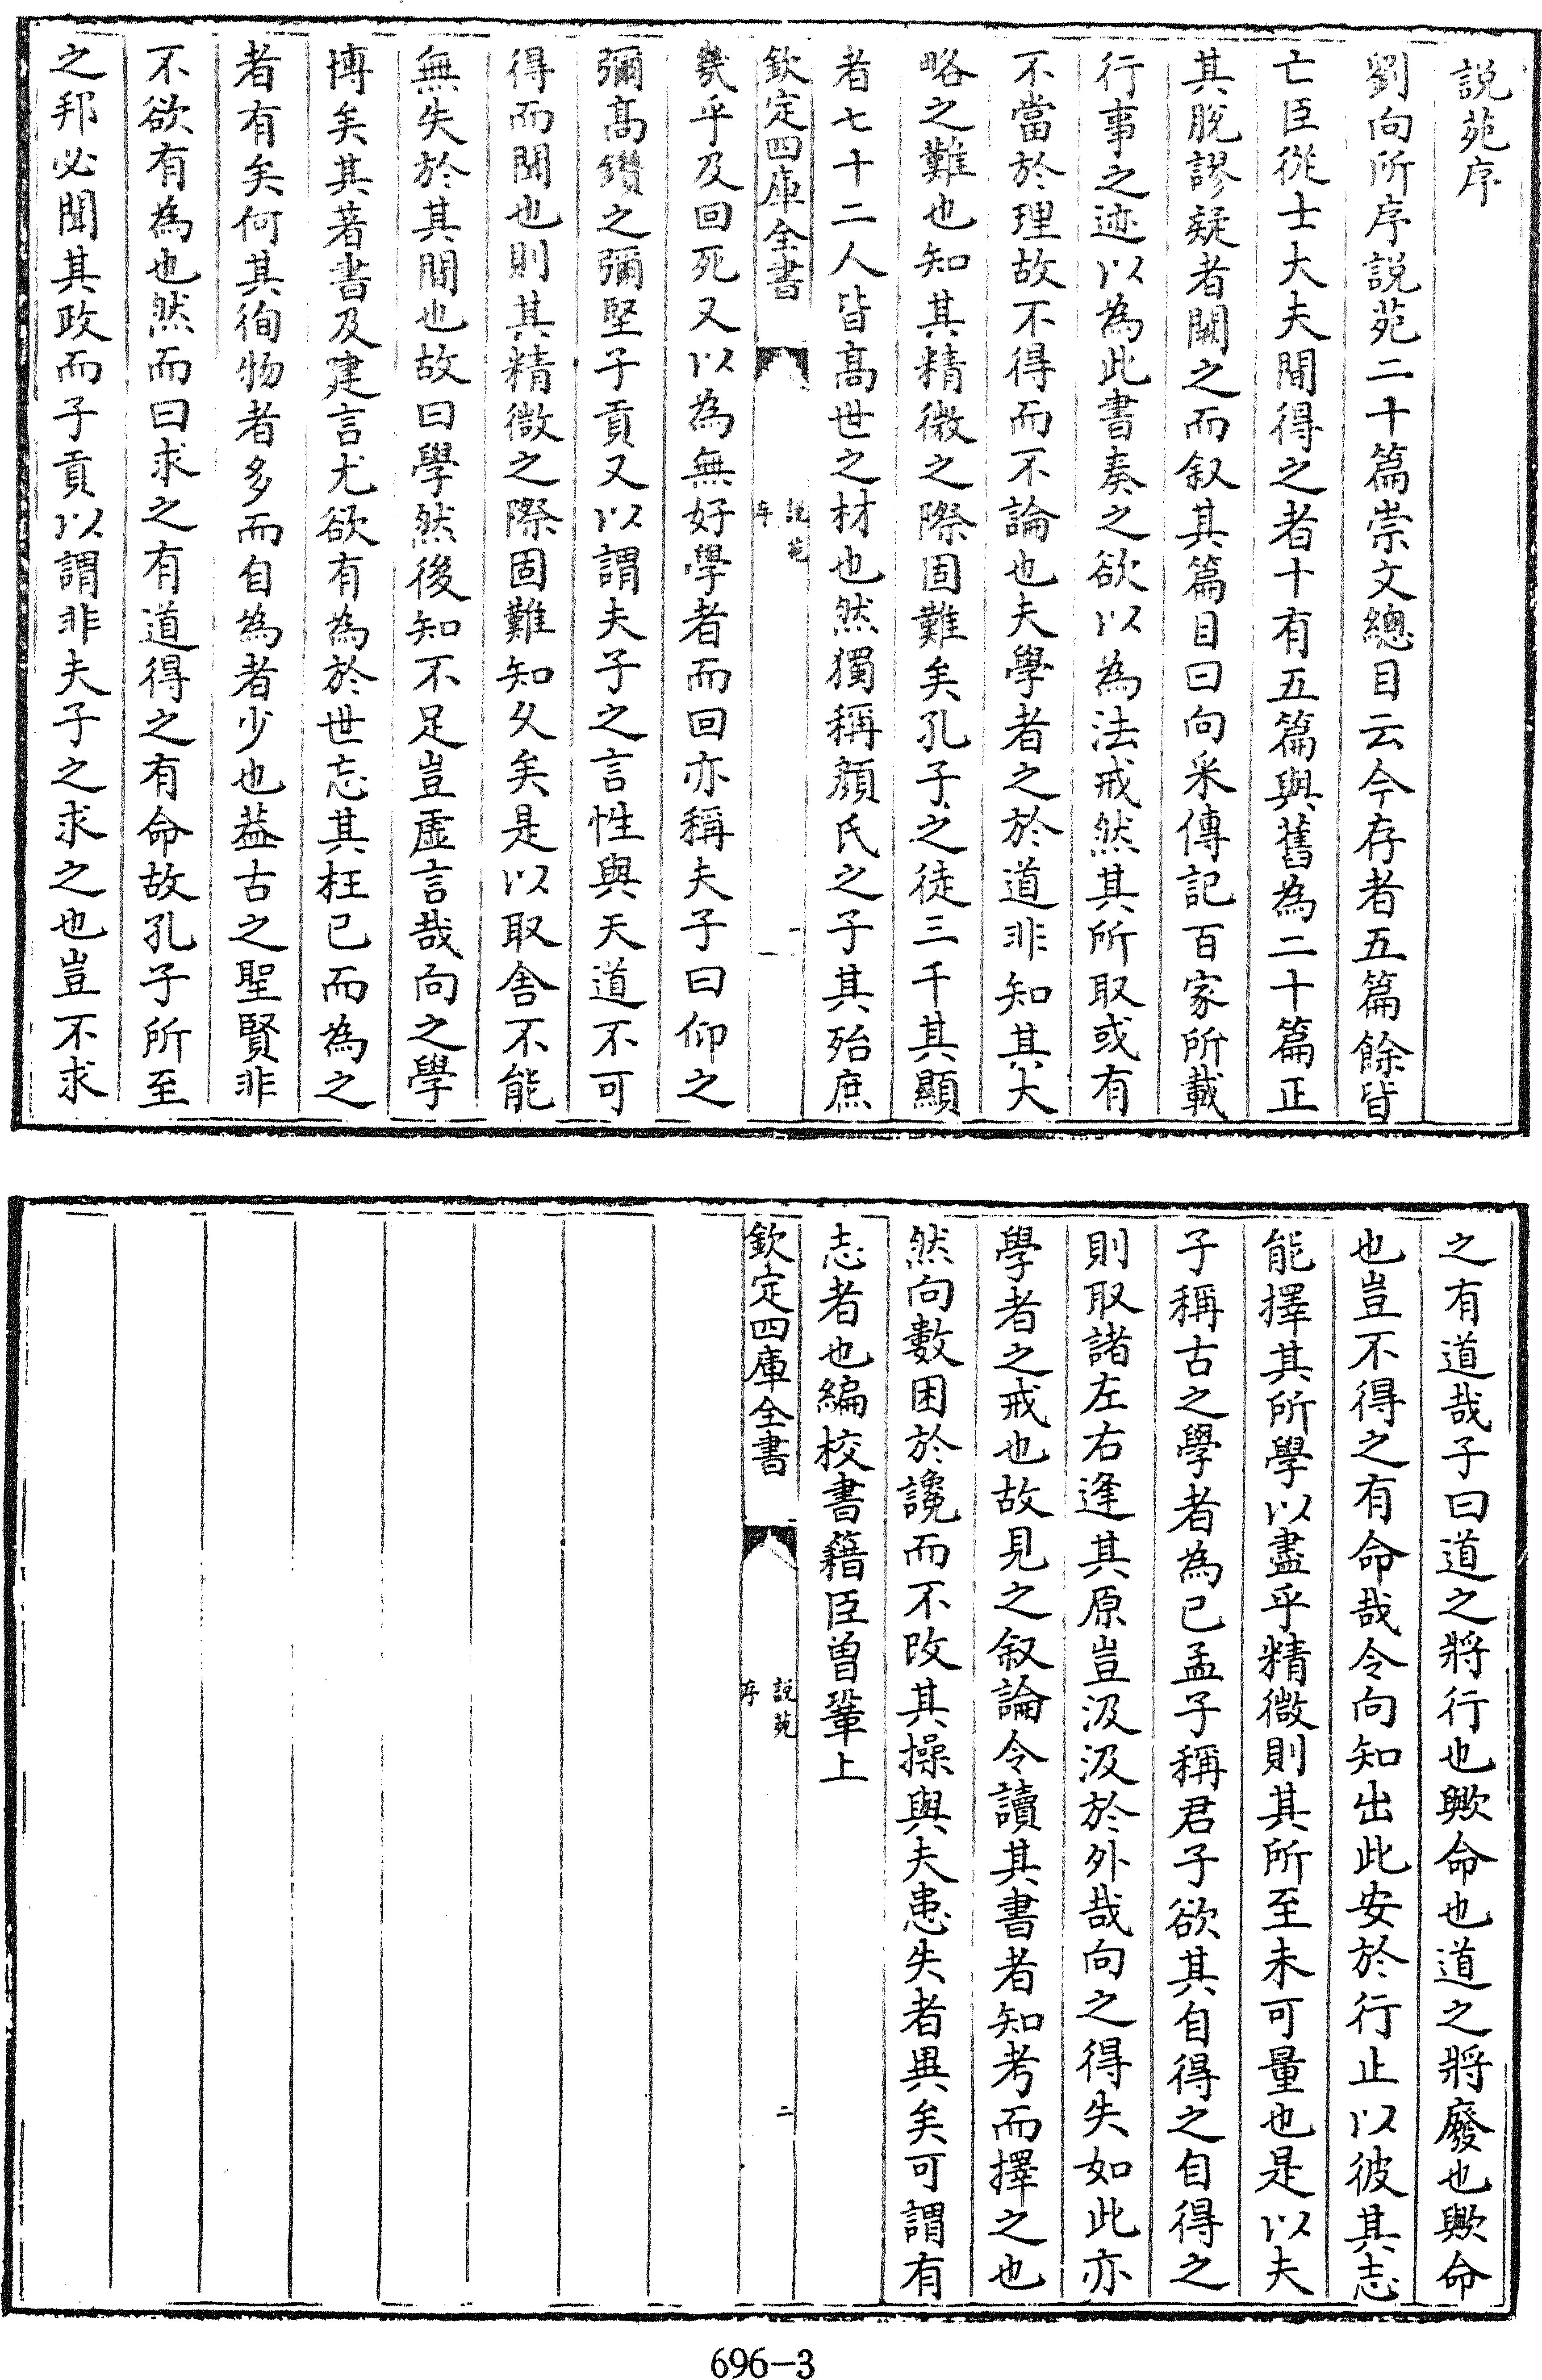 説苑序
劉向所序説苑二十篇崇文總目云今存者五篇餘皆
亡臣從士大夫間得之者十有五篇與舊為二十篇正
其脫謬疑者闕之而叙其篇目曰向采傳記百家所載
行事之迹以為此書奏之欲以為法戒然其所取或有
不當於理故不得而不論也夫學者之於道非知其大
略之難也知其精微之際固難矣孔子之徒三千其顯
者七十二人皆髙世之材也然獨稱顔氏之子其殆庶
欽定四庫全書
説苑
序
一
幾乎及回死又以為無好學者而回亦稱夫子曰仰之
彌髙鑽之彌堅子貢又以謂夫子之言性與天道不可
得而聞也則其精微之際固難知久矣是以取舎不能
無失於其間也故曰學然後知不足豈虚言哉向之學
博矣其著書及建言尤欲有為於世忘其枉已而為之
者有矣何其徇物者多而自為者少也葢古之聖賢非
不欲有為也然而曰求之有道得之有命故孔子所至
之邦必聞其政而子貢以謂非夫子之求之也豈不求
之有道哉子曰道之將行也歟命也道之將廢也歟命
也豈不得之有命哉令向知出此安於行止以彼其志
能擇其所學以盡乎精微則其所至未可量也是以夫
子稱古之學者為已孟子稱君子欲其自得之自得之
則取諸左右逢其原豈汲汲於外哉向之得失如此亦
學者之戒也故見之叙論令讀其書者知考而擇之也
然向數困於讒而不改其操與夫患失者異矣可謂有
志者也編校書籍臣曾鞏上
欽定四庫全書
説苑
序
二
696-3